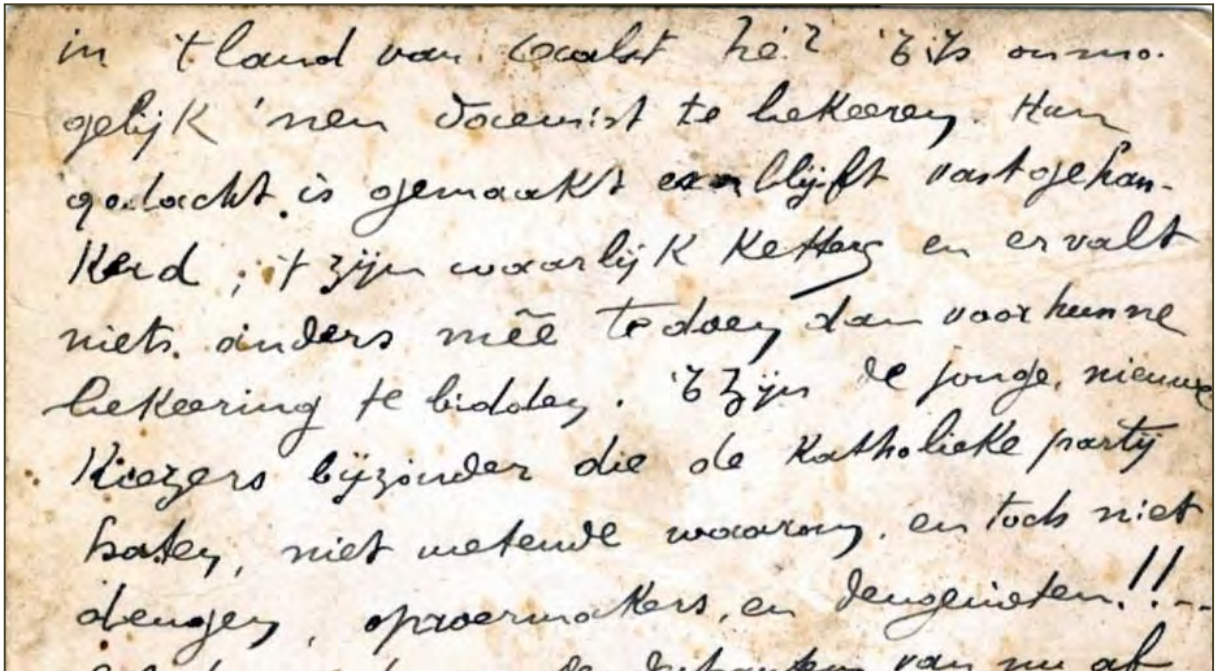 in 't land van Aalst hé? 't is onmo-
gelijk 'nen Daensist te bekeeren. Hun
gedacht is gemaakt en blijft vastgehan-
kerd; 't zijn waarlijk Ketters en er valt
niets anders mêe te doen dan voor hunne
bekeering te bidden. 't Zijn de jonge, nieuwe
Kiezers bijzonder die de Katholieke partij
haten, niet wetende waarom, en toch niet
deugen, oproermakers, en deugnieten!!--
van nu af